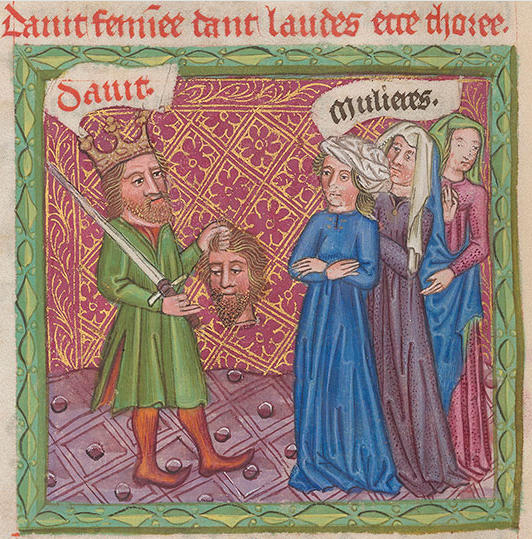 Dauit femīee dant laudes ecce choree.
Dauit.
Mulieres.